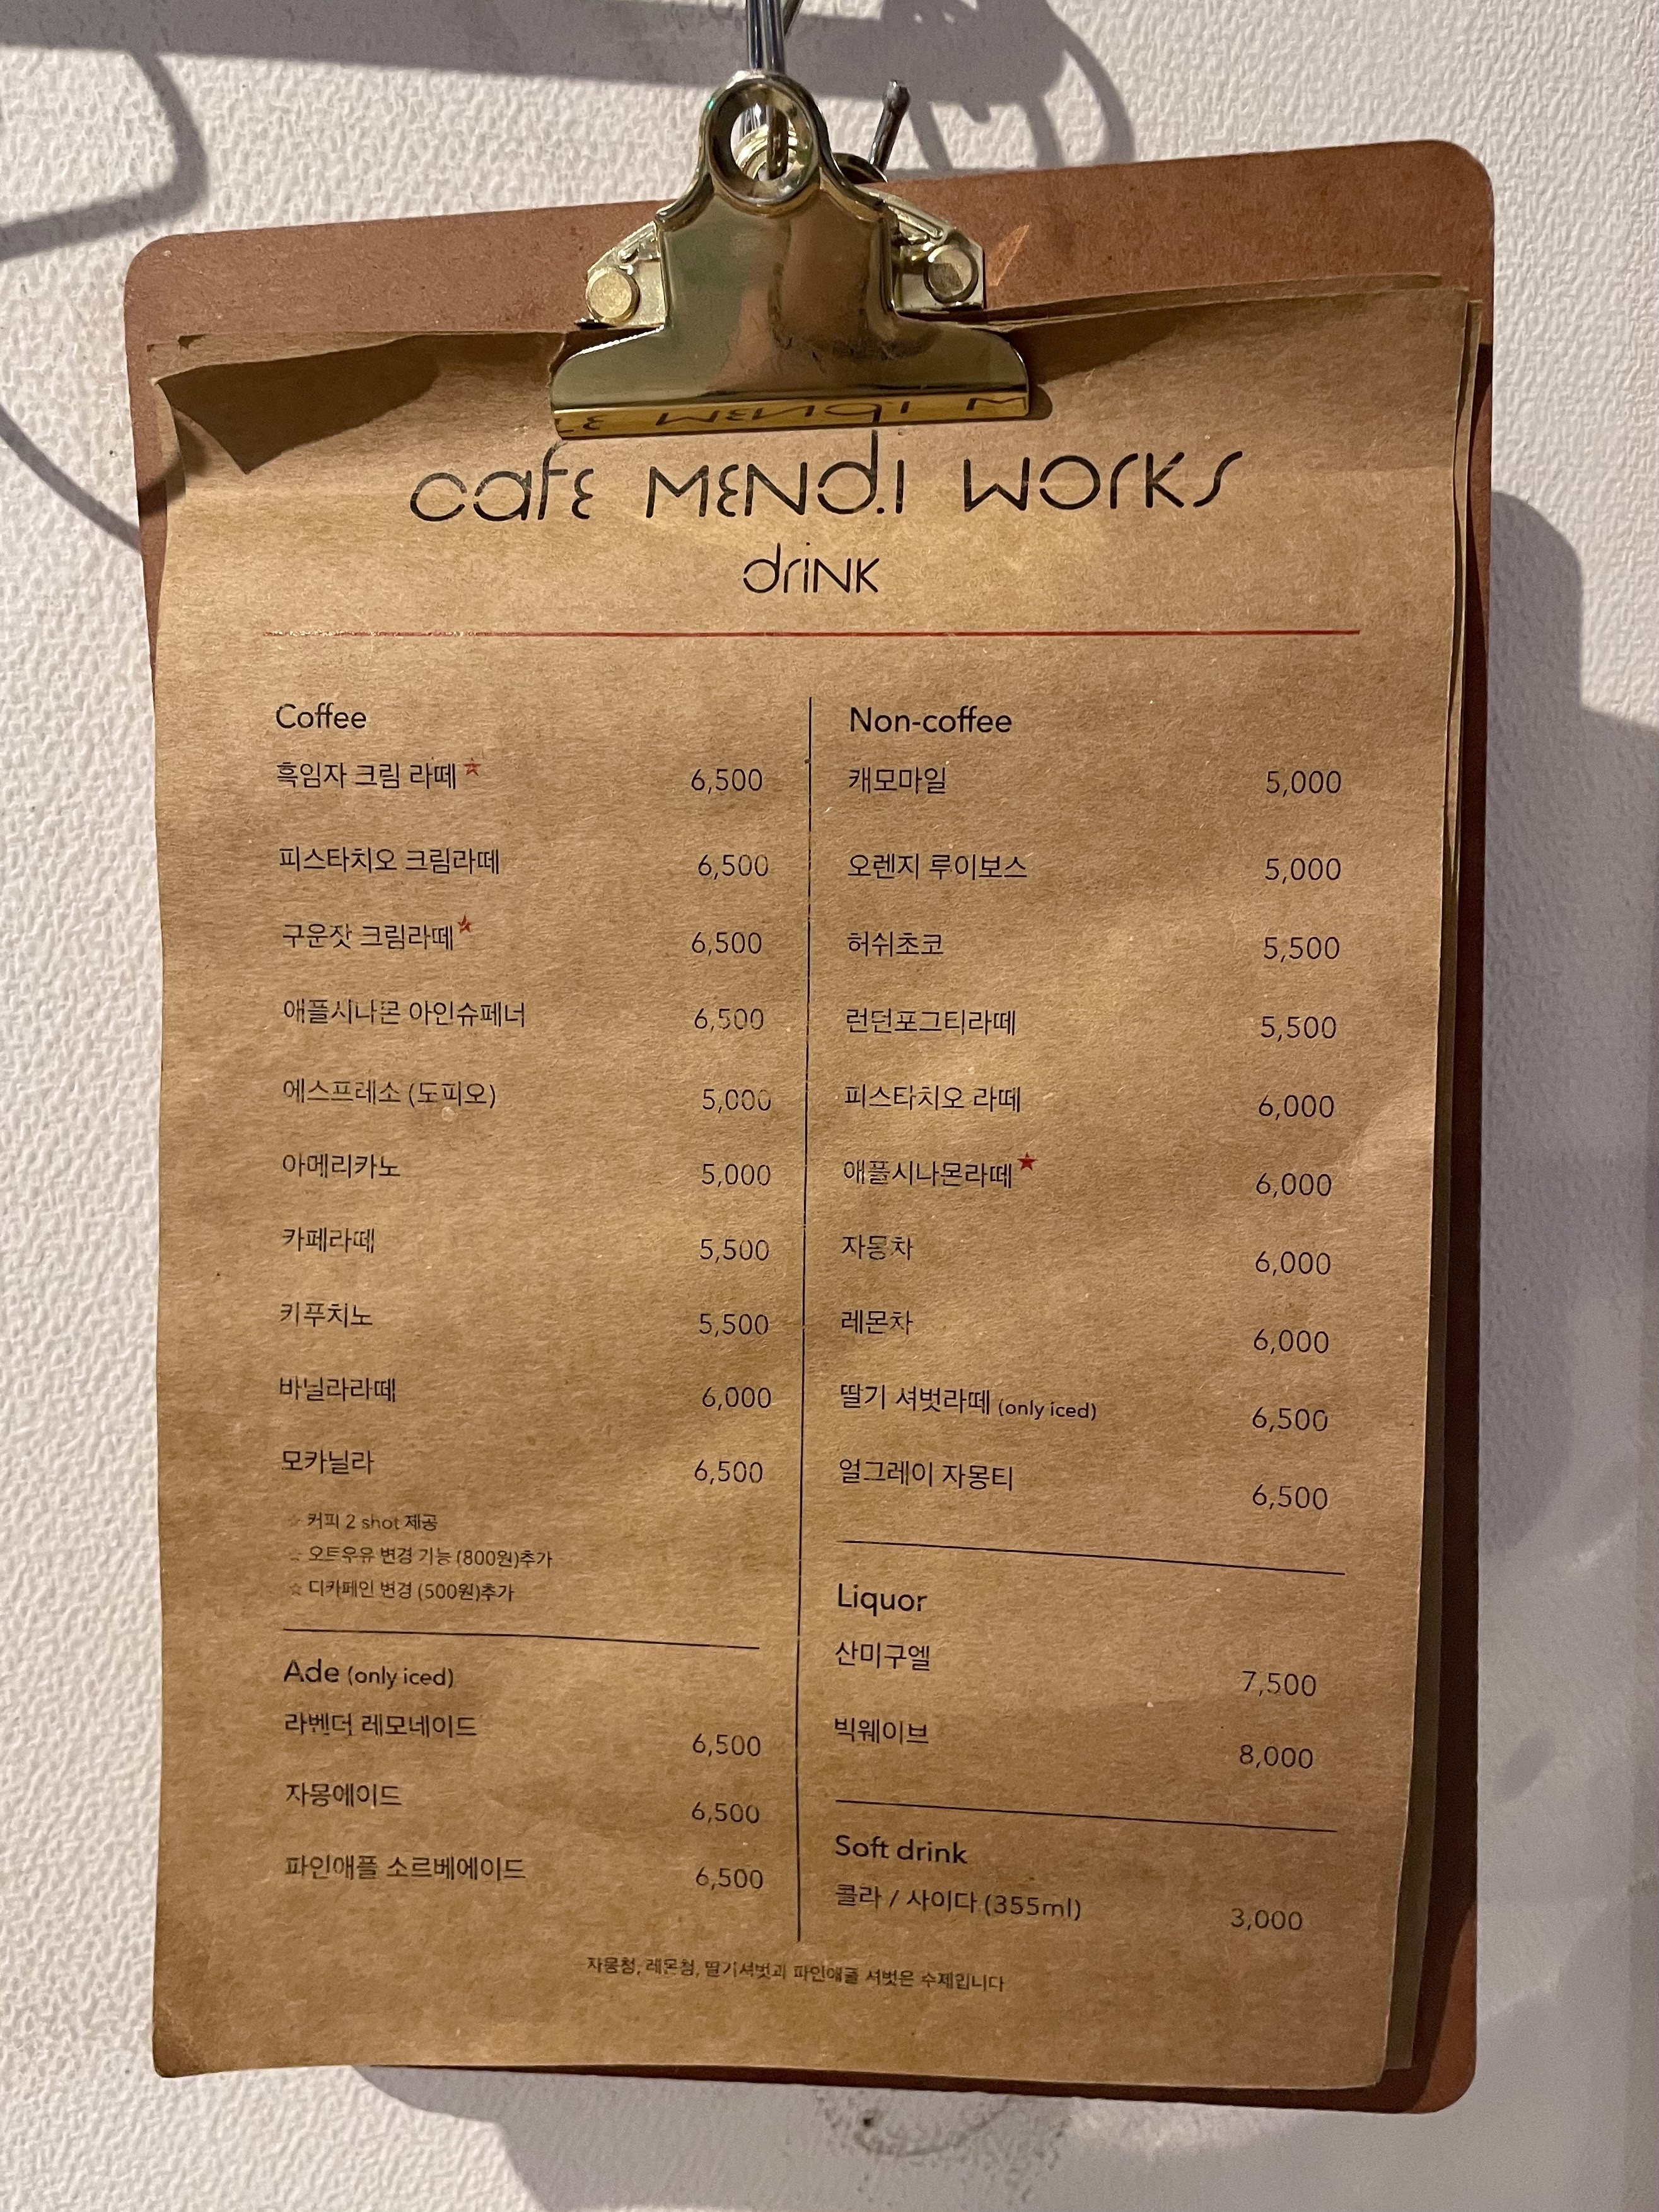 cafe MENd.I WOrKS
drINK
Coffee
흑임자 크림 라떼 ★ 6,500
피스타치오 크림라떼 6,500
구운잣 크림라떼 ★ 6,500
애플시나몬 아인슈페너 6,500
에스프레소 (도피오) 5,000
아메리카노 5,000
카페라떼 5,500
카푸치노 5,500
바닐라라떼 6,000
모카닐라 6,500
☆ 커피 2 shot 제공
☆ 오트우유 변경 가능 (800원)추가
☆ 디카페인 변경 (500원)추가
Ade (only iced)
라벤더 레모네이드 6,500
자몽에이드 6,500
파인애플 소르베에이드 6,500
Non-coffee
캐모마일 5,000
오렌지 루이보스 5,000
허쉬초코 5,500
런던포그티라떼 5,500
피스타치오 라떼 6,000
애플시나몬라떼 ★ 6,000
자몽차 6,000
레몬차 6,000
딸기 셔벗라떼 (only iced) 6,500
얼그레이 자몽티 6,500
Liquor
산미구엘 7,500
빅웨이브 8,000
Soft drink
콜라 / 사이다 (355ml) 3,000
자몽청, 레몬청, 딸기셔벗과 파인애플 셔벗은 수제입니다